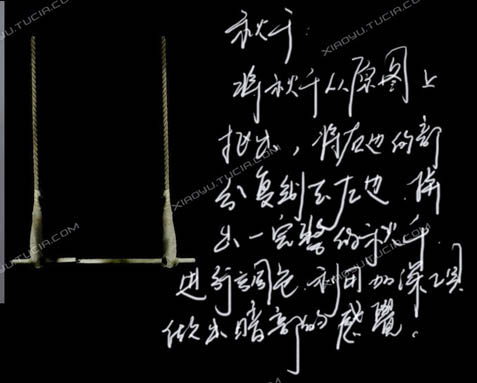 秋千:
将秋千从原图上
抠出，将右边的部
分复制至左边.作
出一完整的秋千.
进行调色.利用加深工具
做出暗部的感觉.
XIAOYU.TUCIA.COM
XIAOYU.TUCIA.COM
XIAOYU.TUCIA.COM